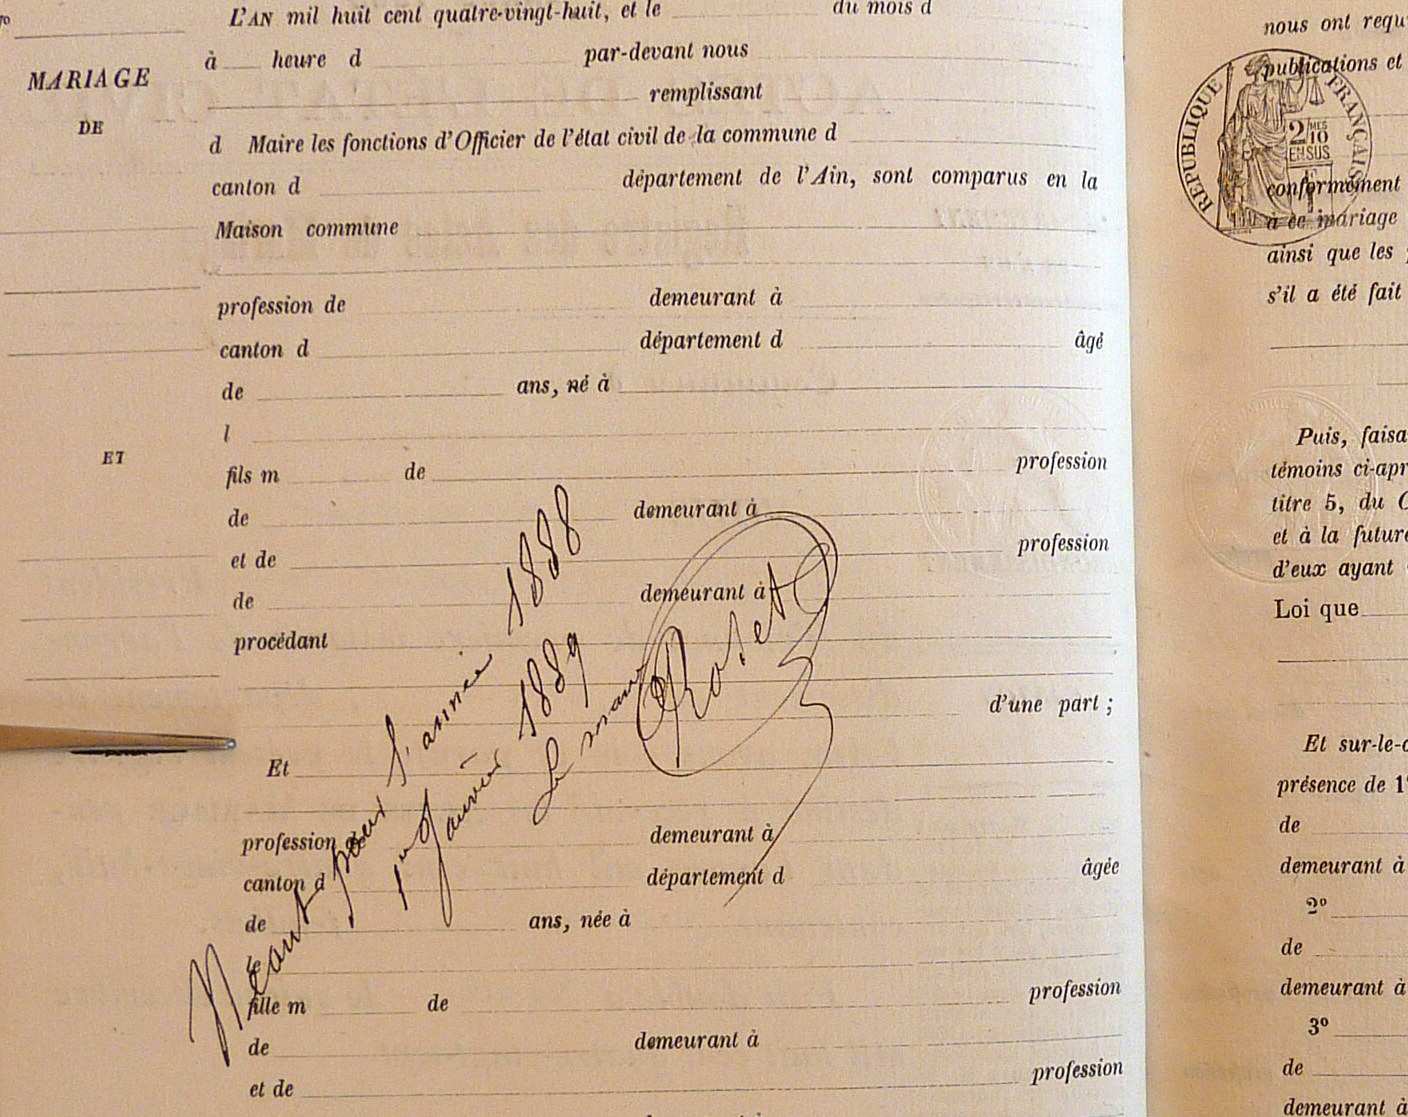 MARIAGE
DE
ET
L'AN mil huit cent quatre-vingt-huit, et le du mois d
à heure d par-devant nous
remplissant
d Maire les fonctions d'Officier de l'état civil de la commune d
canton d département de l'Ain, sont comparus en la
Maison commune
profession de demeurant à
canton d département d âgé
de ans, né à
l
fils m de profession
de demeurant à
et de profession
de demeurant à
procédant
d'une part ;
Et
profession de demeurant à
canton d département d âgée
de ans, née à
le
fille m de profession
de demeurant à
et de profession
Néant pour l'année 1888
1er Janvier 1889
Le maire
Roset
nous ont requ
publications et
RÉPUBLIQUE FRANÇAISE
2/10 MES
EN SUS
conformément
à ce mariage
ainsi que les
s'il a été fait
Puis, faisa
témoins ci-apr
titre 5, du C
et à la future
d'eux ayant
Loi que
Et sur-le-c
présence de 1°
de
demeurant à
2°
de
demeurant à
3°
de
demeurant à